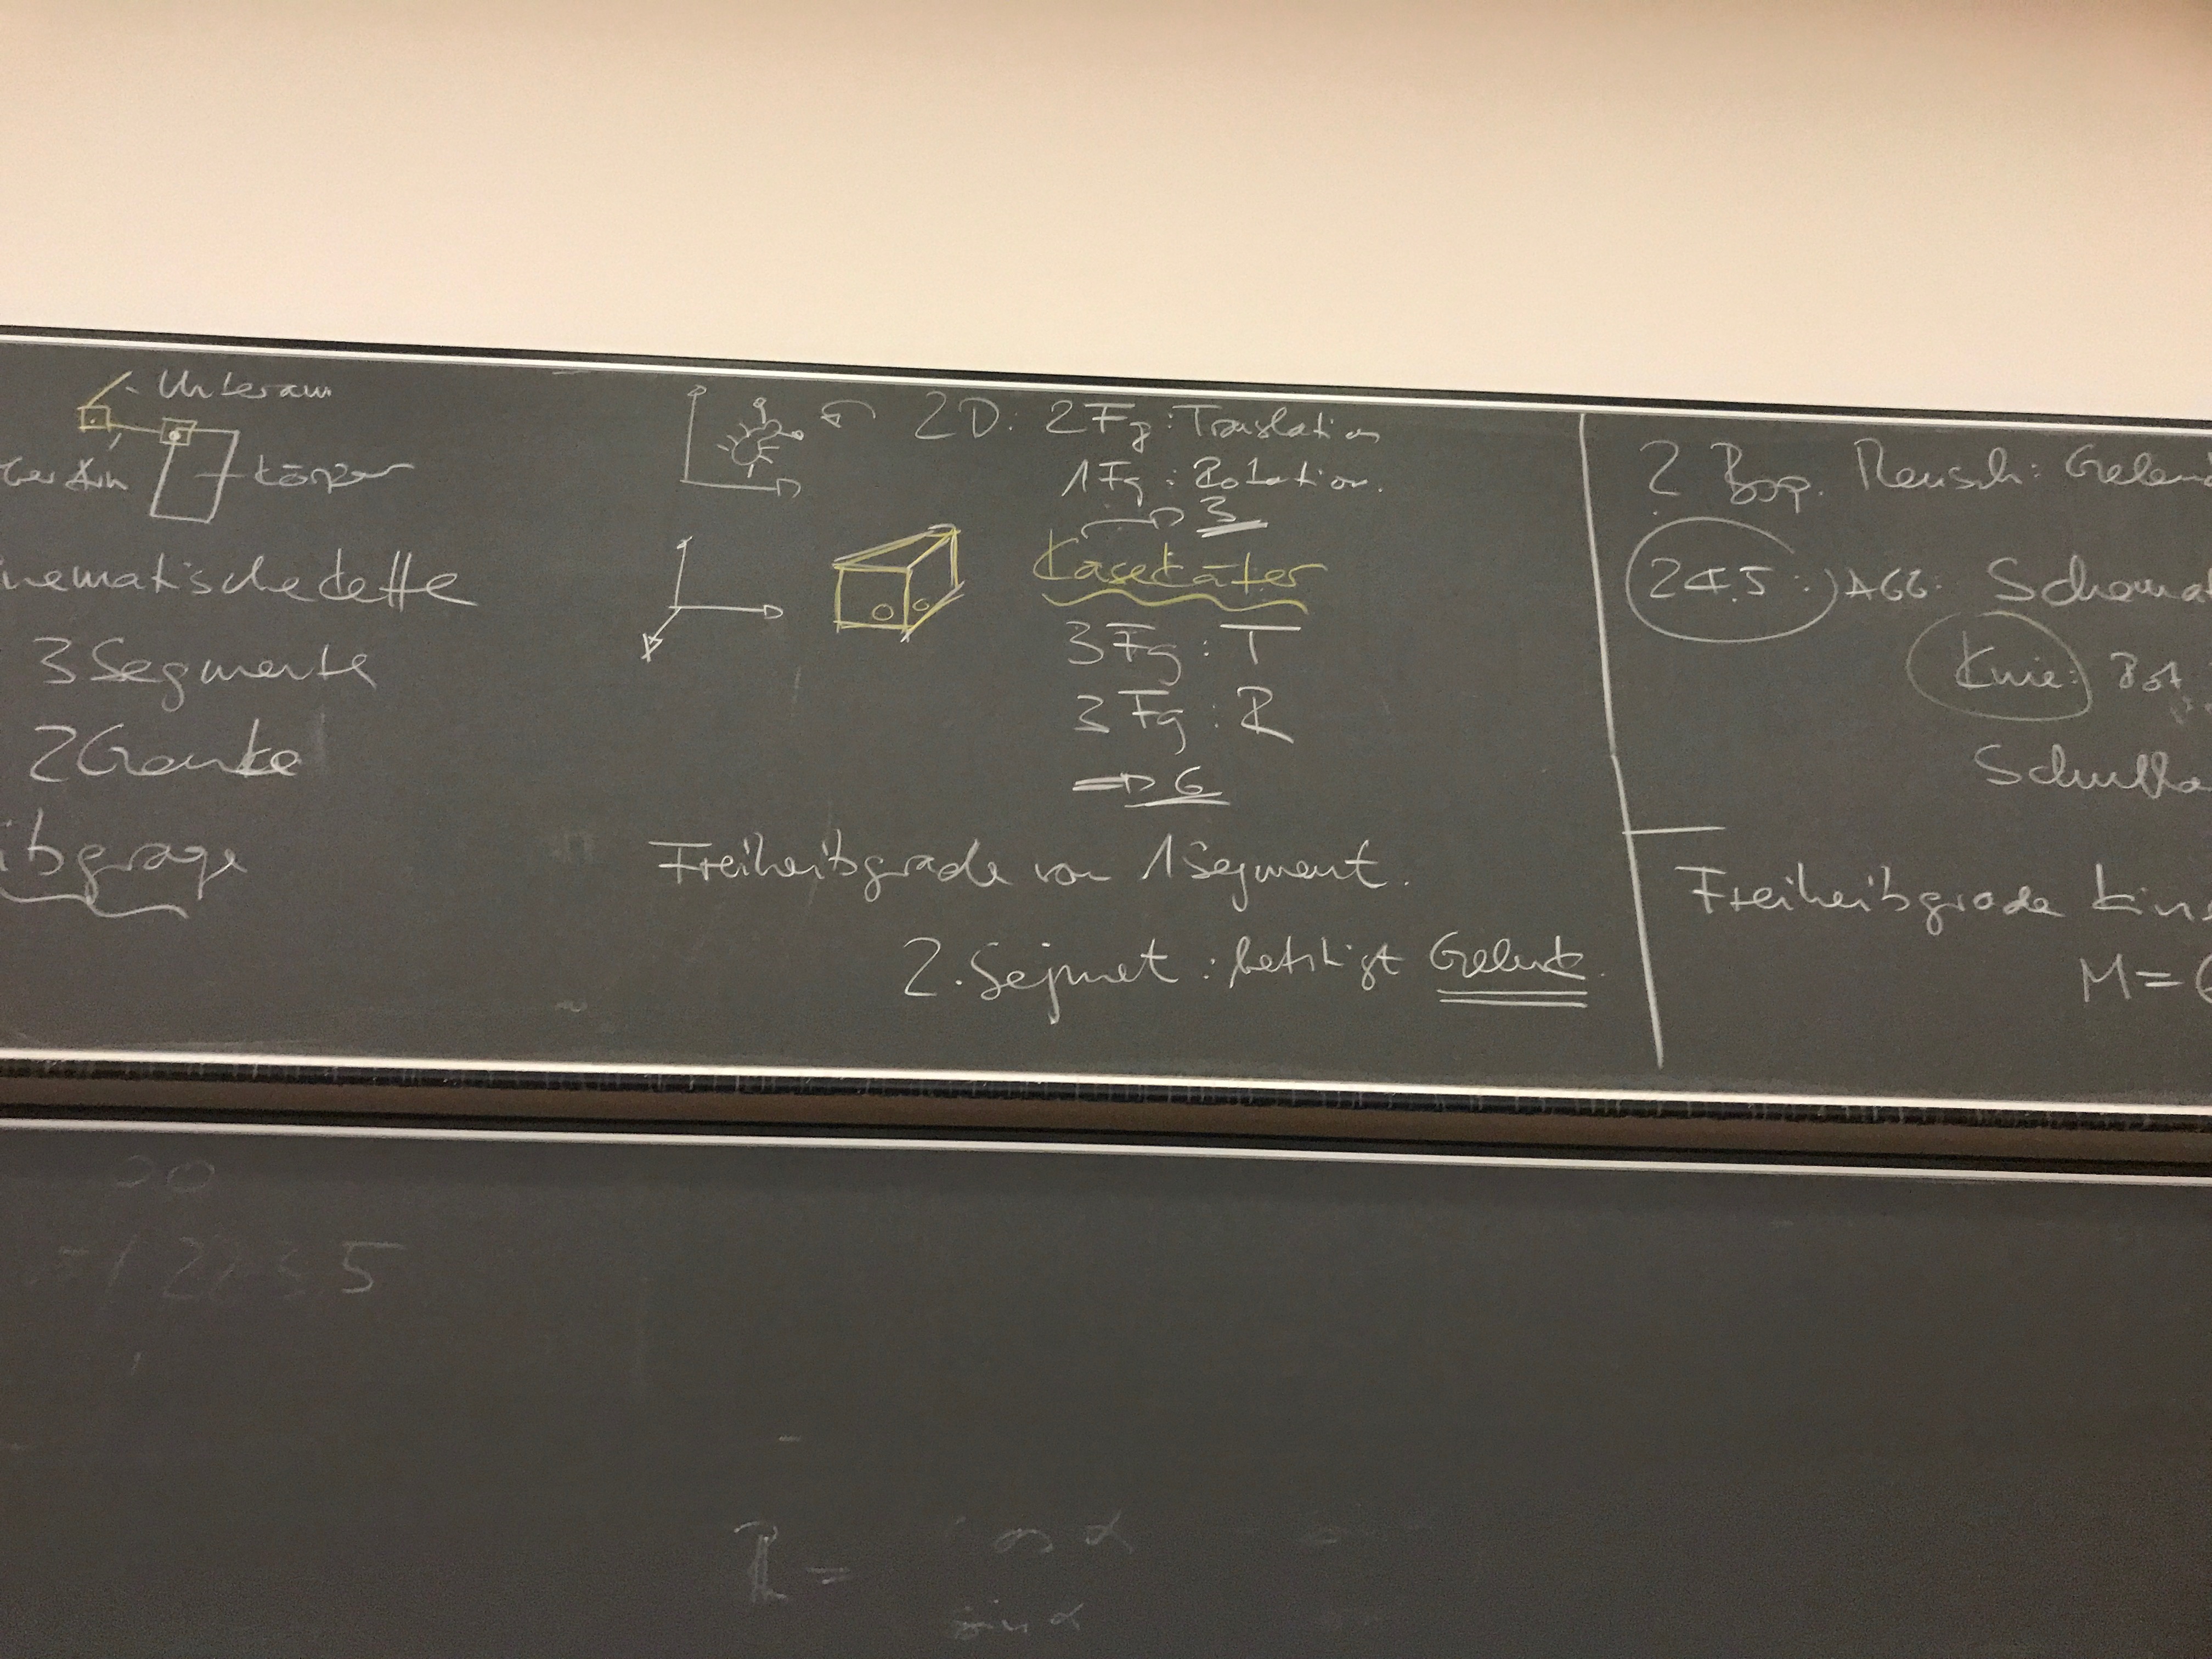 Unterarm
Körper
nematische Kette
3 Segmente
2 Gelenke
2D: 2 Fg: Translation
1 Fg: Rotation.
3
Käsekäfer
3 Fg: T
3 Fg: R
⇒ 6
Freiheitsgrade von 1 Segment.
2. Segment: benötigt Gelenk.
2 Bsp. Mensch: Gelen
24.5:) A66:
Knie: Rot
Freiheitsgrade kin
M=
5
R =
cos α
sin α